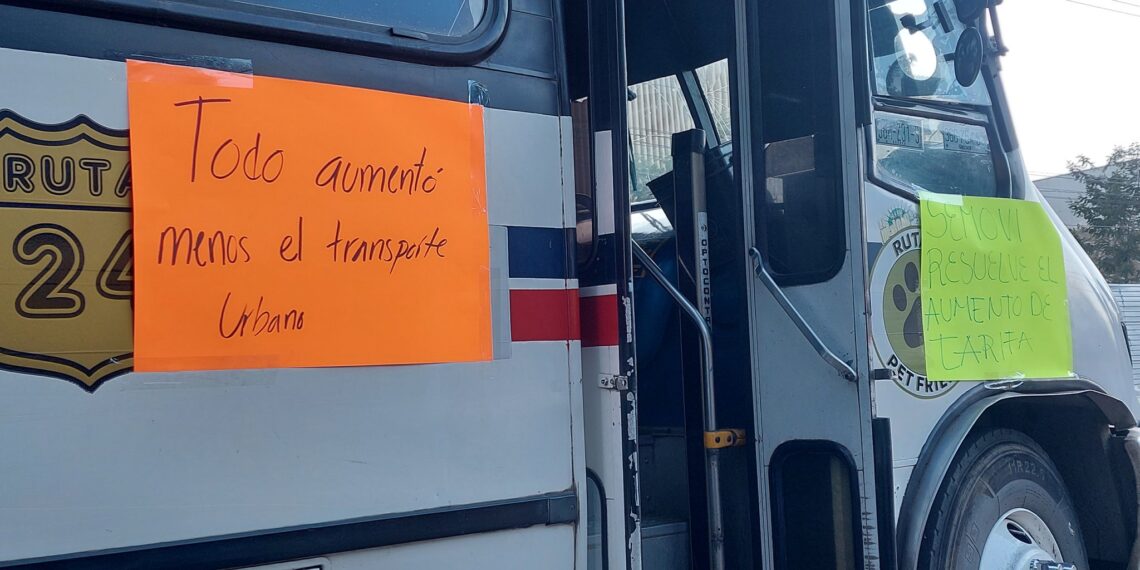 RUTA
24
Todo aumentó
menos el transporte
Urbano
OPTOCONTROL
RUTA
PET FRIE
SEMOVI
RESUELVE EL
AUMENTO DE
TARIFA
11R22.5